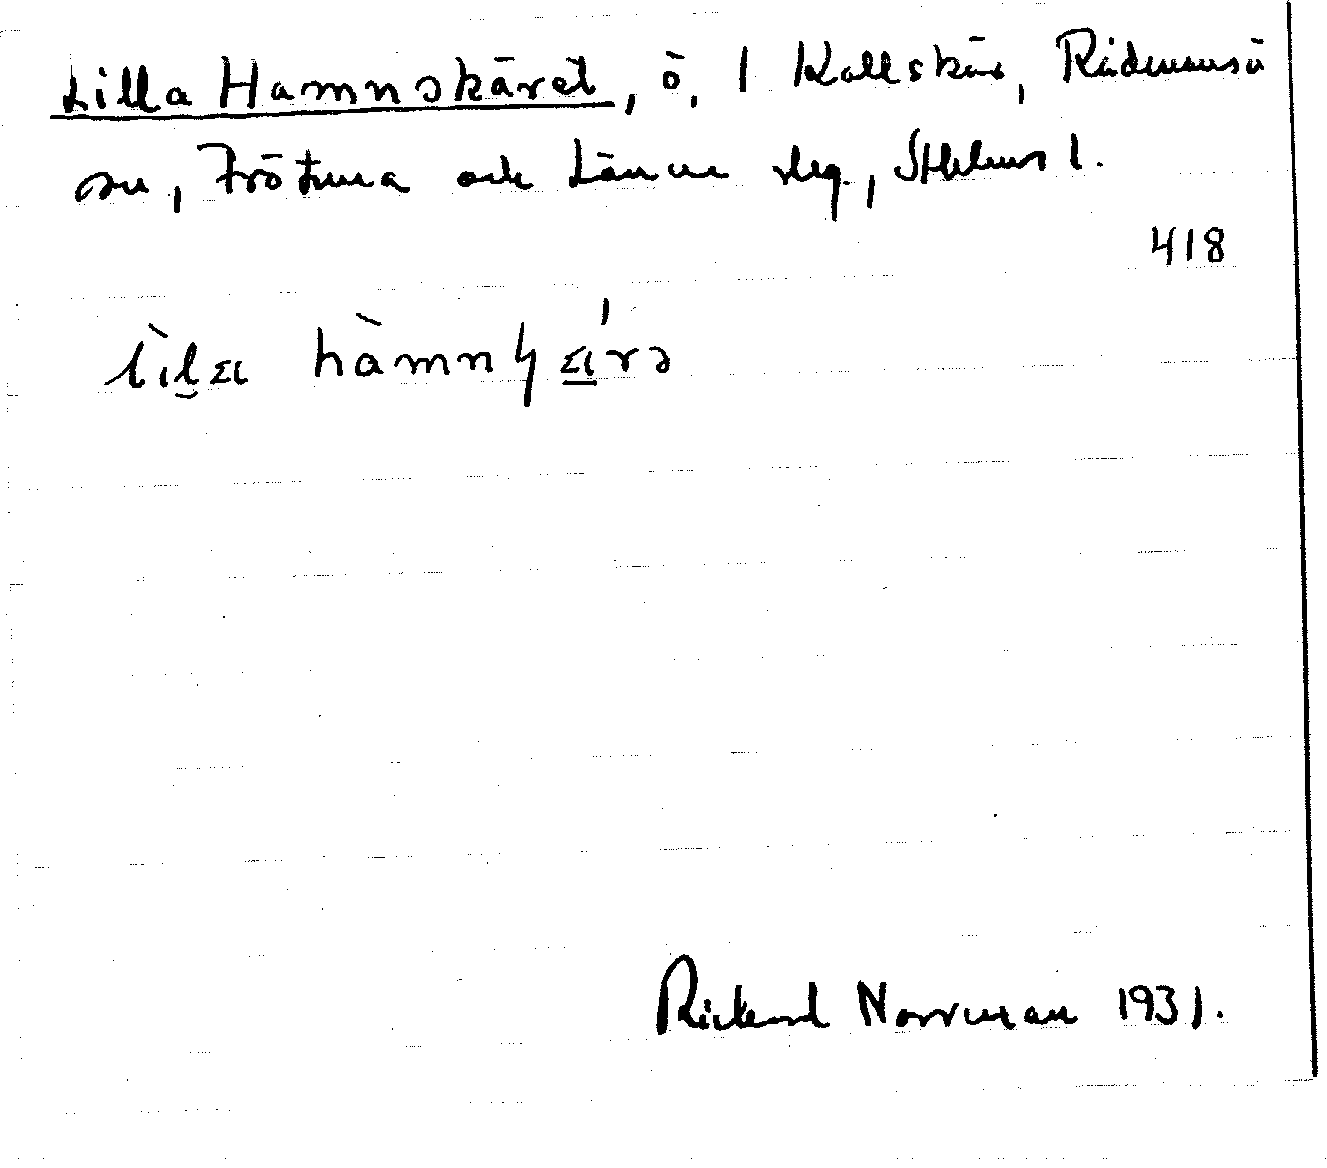 Lilla Hamnskäret, ö, 1 Kallskär, Rådmansö
sn, Frötuna och Länna slg., Sthlms l.
418
Rickard Norrman 1931.